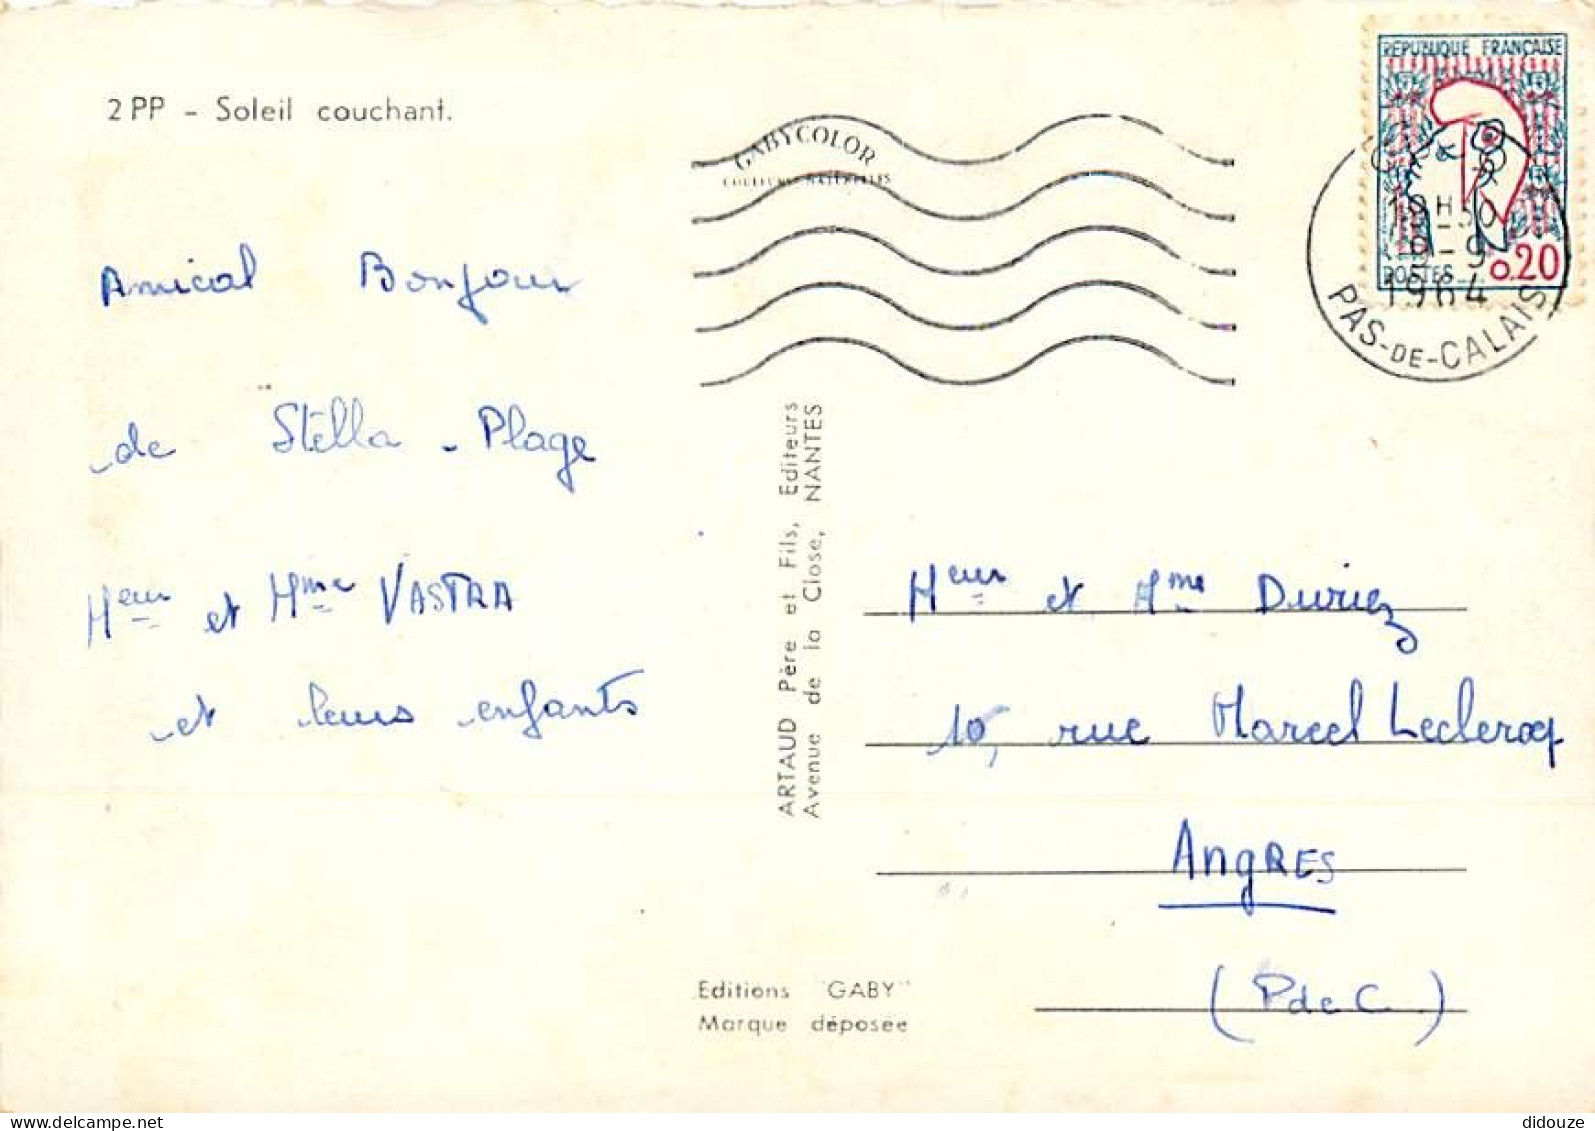 2 PP - Soleil couchant.
GABYCOLOR
COULEURS NATURELLES
RÉPUBLIQUE FRANÇAISE
POSTES
0.20
9-9
1964
PAS-DE-CALAIS
Amical Bonjour
de Stella-Plage
Meur et Mme VASTRA
et leurs enfants
ARTAUD Père et Fils, Editeurs
Avenue de la Close, NANTES
Meur et Mme Duriez
10, rue Marcel Leclercq
ANgRES
(P de C)
Editions "GABY"
Marque déposée
delcampe.net
didouze